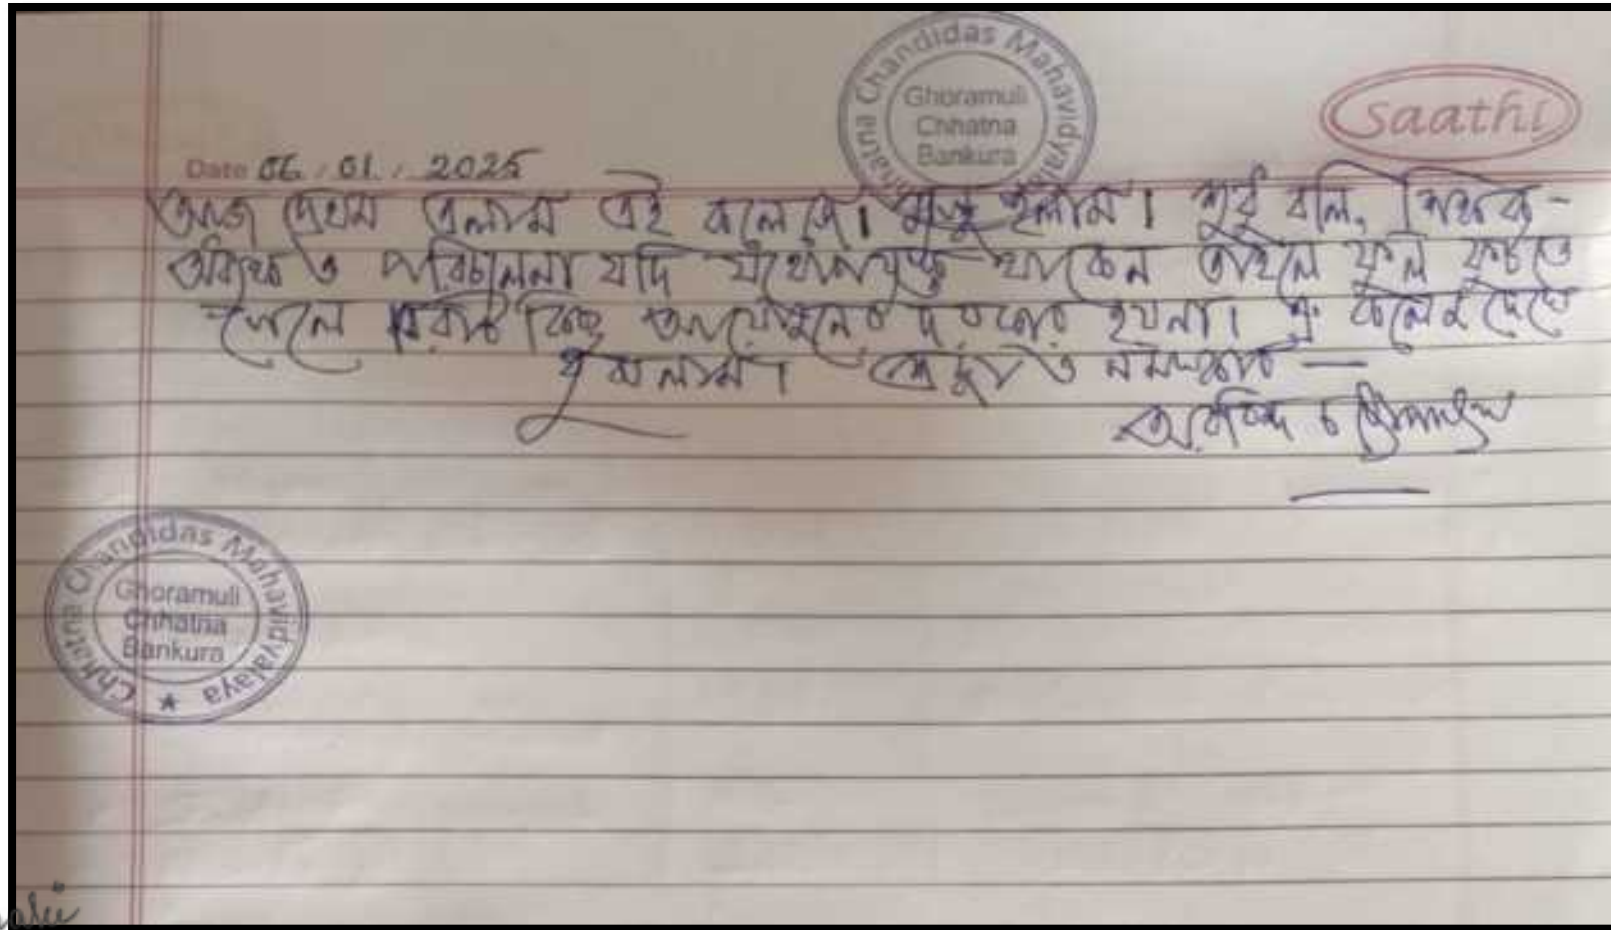 Chhatna Chandidas Mahavidyalaya
Ghoramuli
Chhatna
Bankura
saathi
Date 06.01.2025
আজ প্রথম এলাম এই কলেজে। মুগ্ধ হলাম। শুধু বলি, শিক্ষক-
অধ্যক্ষ ও পরিচালনা যদি যথোপযুক্ত থাকেন তাহলে ফুল ফুটতে
গেলে বিরাট কিছু আয়োজনের দরকার হয়না। এ কলেজ দেখে
বুঝলাম। শ্রদ্ধা ও নমস্কার —
অরবিন্দ চট্টোপাধ্যায়
Chhatna Chandidas Mahavidyalaya ★
Ghoramuli
Chhatna
Bankura